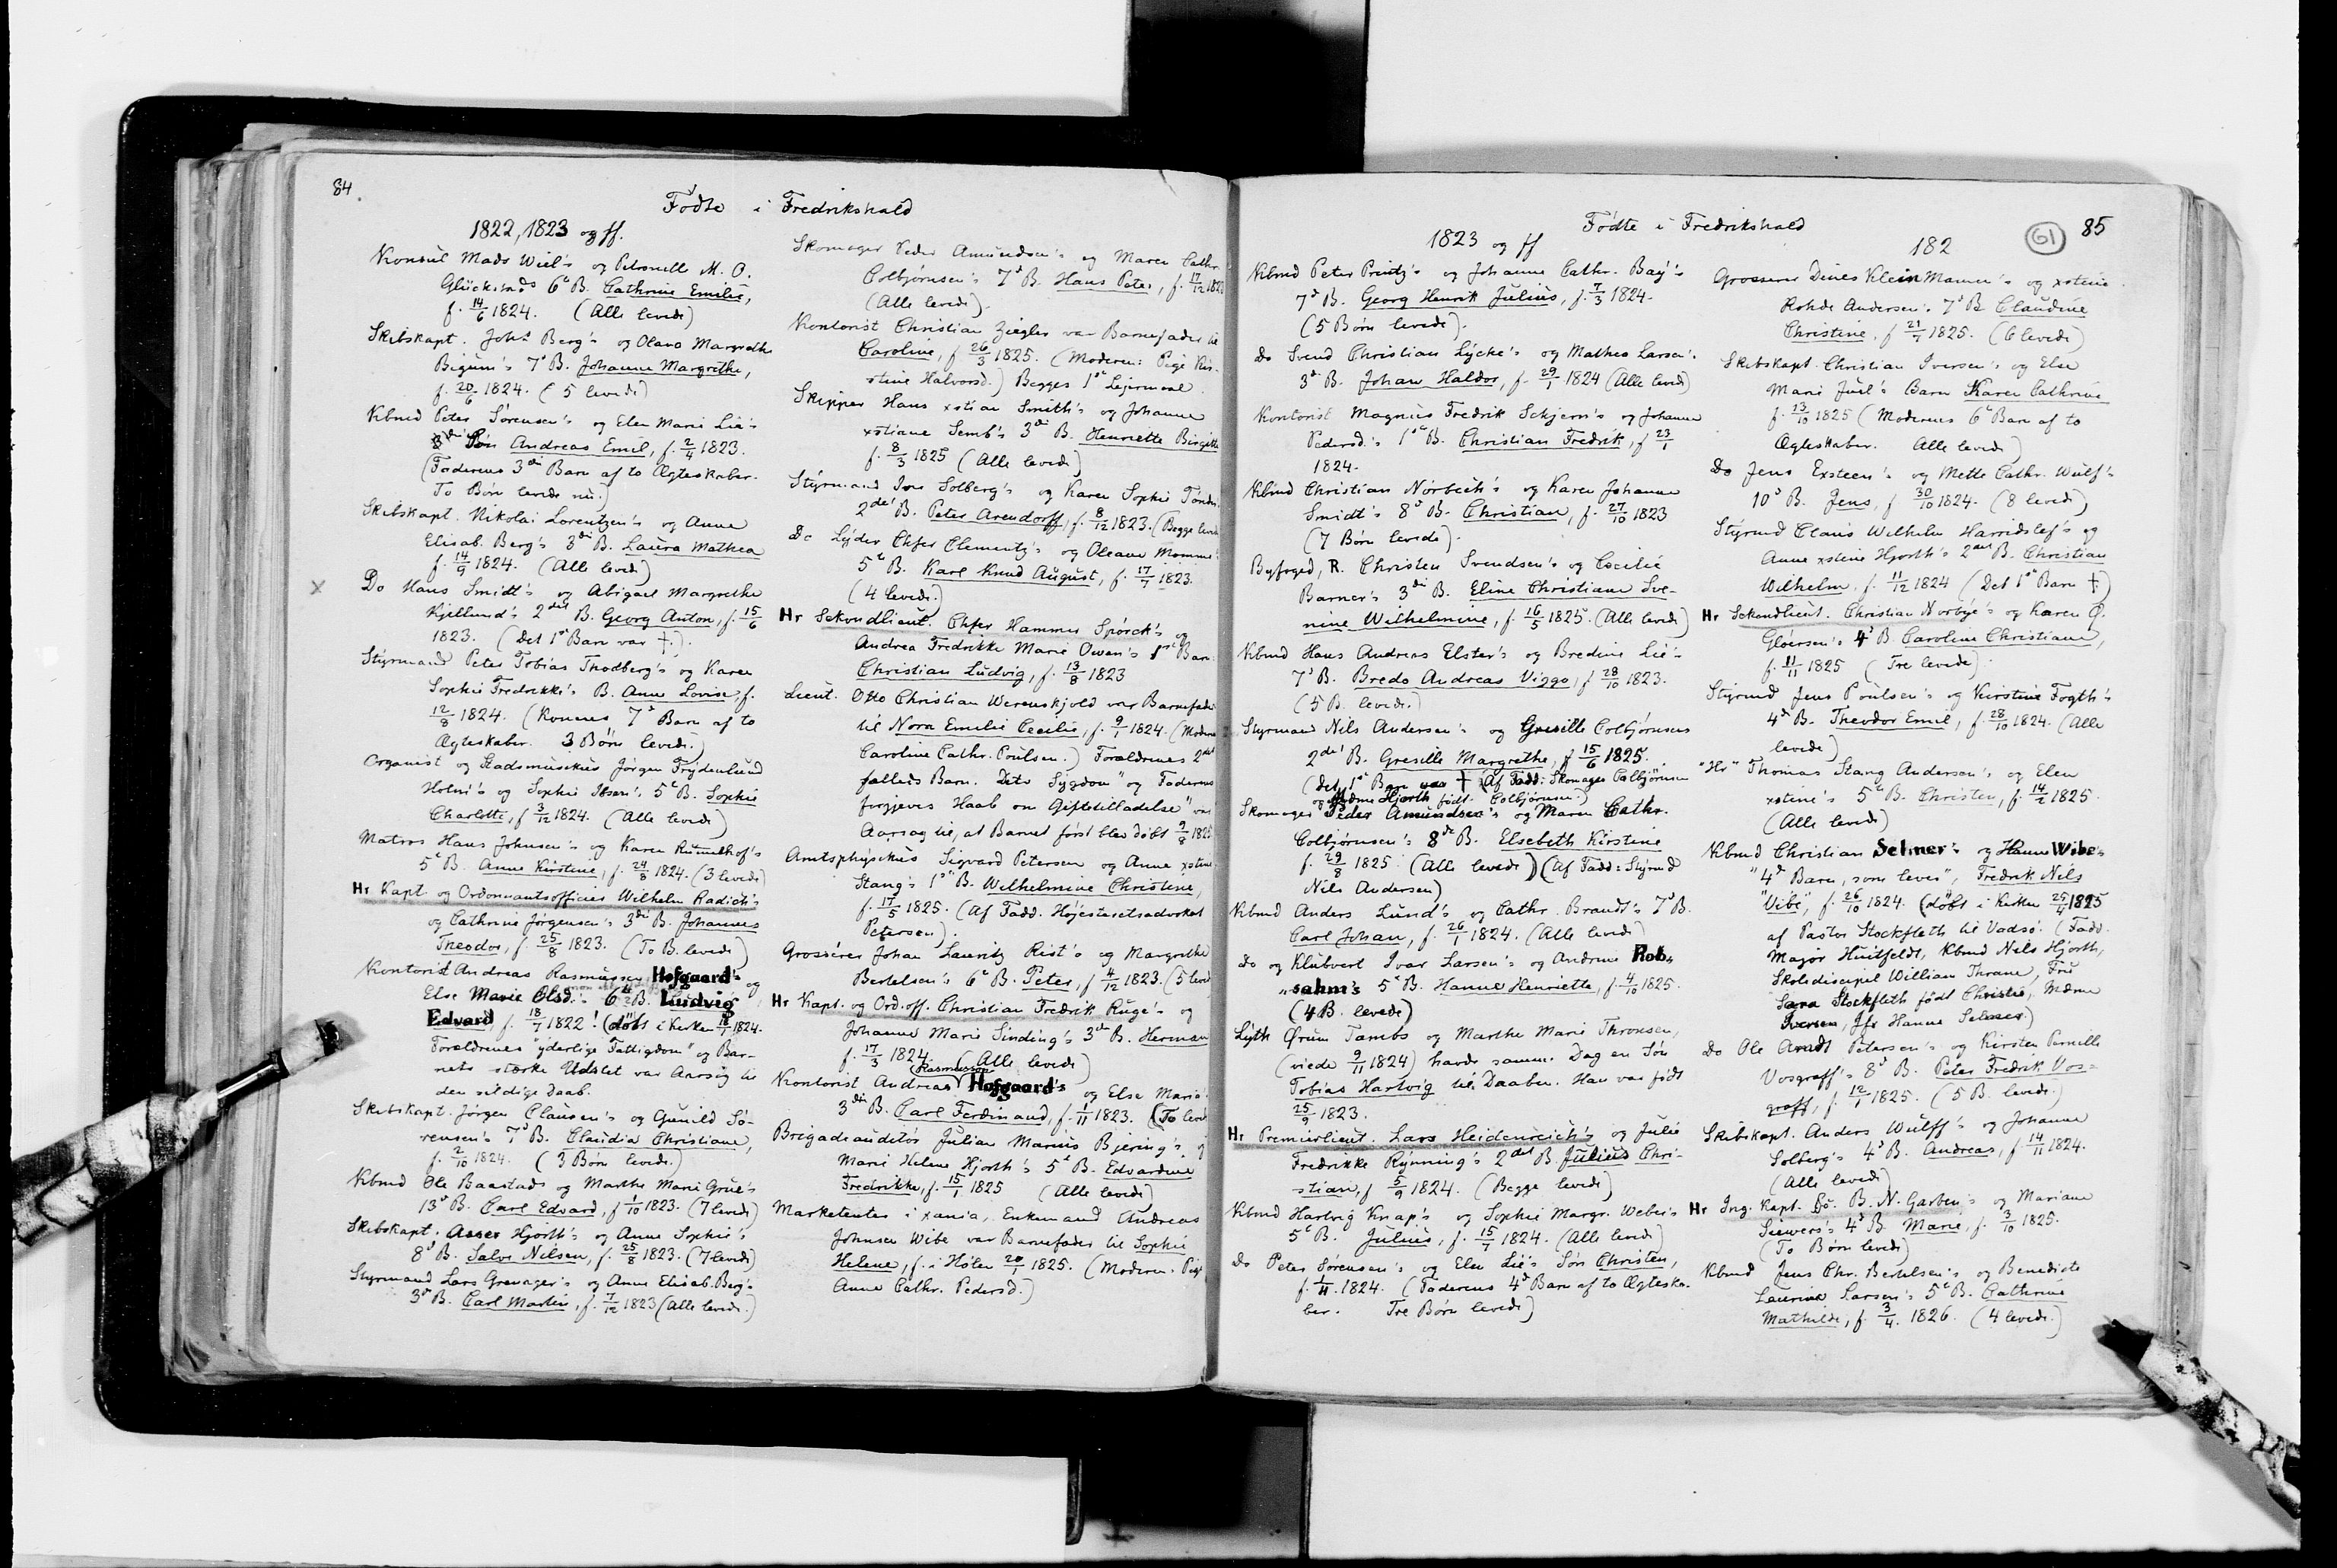 84.
Fødte i Fredrikshald
1822, 1823 og ff.
Konsul Mads Wiel's og Petronelle M. O.
Glückstads 6te B. Cathrine Emilie,
f. 14/6 1824. (Alle levede)
Skibskapt. Johs Berg's og Olava Margrethe
Bigum's 7de B. Johanne Margrethe,
f. 20/6 1824. (5 levede)
Kbmd Peter Sørensen's og Elen Marie Lie's
Søn Andreas Emil, f. 2/4 1823.
(Faderens 3die Barn af to Ægteskaber.
To Børn levede nu.)
Skibskapt. Nikolai Lorentzen's og Anne
Elisab. Berg's 3die B. Laura Mathea
f. 14/9 1824. (Alle levede)
x Do Hans Smidt's og Abigael Margrethe
Kjellund's 2det B. Georg Anton, f. 15/6
1823. (Det 1ste Barn var †.)
Styrmand Peter Tobias Thodberg's og Karen
Sophie Fredrikke's B. Anne Lovise, f.
12/8 1824. (Konens 7de Barn af to
Ægteskaber. 3 Børn levede.)
Organist og Stadsmusikus Jørgen Frydenlund
Holm's og Sophie Ibsen's 5te B. Sophie
Charlotte, f. 3/12 1824. (Alle levede)
Matros Hans Johnsen's og Karen Rumelhof's
5te B. Anne Kirstine, f. 24/8 1824. (3 levede)
Hr Kapt. og Ordonnantsofficier Wilhelm Radich's
og Cathrine Jørgensen's 3die B. Johannes
Theodor, f. 25/8 1823. (To B. levede)
Kontorist Andreas Rasmussen Hofgaard's og
Else Marie Olsd.'s 6te B. Ludvig
Edvard, f. 18/7 1822! (døbt i Kirken 1824.
Forældrenes "yderlige Fattigdom" og Bar-
nets stærke Udslet var Aarsag til
den sildige Daab.
Skibskapt. Jørgen Clausen's og Gunild Sø-
rensen's 7de B. Claudia Christiane,
f. 2/10 1824. (3 Børn levede.)
Kbmd Ole Baastads og Marthe Marie Grue's
13de B. Carl Edvard, f. 1/10 1823. (7 levede)
Skibskapt. Asser Hjorth's og Anne Sophie's
8de B. Salve Nilsen, f. 25/8 1823. (7 levede)
Styrmand Lars Grenager's og Anne Elisab. Berg's
3die B. Carl Martin, f. 7/12 1823 (Alle levede.)
Skomager Peder Amundsen's og Maren Cathr.
Colbjørnsen's 7de B. Hans Peter, f. 17/12 1823
(Alle levede).
Kontorist Christian Ziegler var Barnefader til
Caroline, f. 26/3 1825. (Moderen: Pige Kir-
stine Halvorsd.) Begges 1ste Lejermaal.
Skipper Hans xstian Smith's og Johanne
xstiane Semb's 3die B. Henriette Birgitte
f. 8/3 1825 (Alle levede)
Styrmand Iver Solberg's og Karen Sophie
2det B. Peter Arendorff, f. 8/12 1823. (Begge levede
Do Lyder Chfer Clementz's og Oleane Momme's
5te B. Karl Knud August, f. 17/7 1823.
(4 levede.)
Hr Sekondlieut. Chfer Hammer Spørck's og
Andrea Fredrikke Marie Owen's 1ste Barn
Christian Ludvig, f. 13/8 1823
Lieut. Otto Christian Werenskjold var Barnefader
til Nora Emilie Cecilie, f. 9/1 1824. (Moderen
Caroline Cathr. Poulsen.) Forældrenes 2det
fælleds Barn. Dets Sygdom" og Faderens
forgjeves Haab om Giftetilladelse" var
Aarsag til, at Barnet først blev døbt 9/8 1825
Amtsphysikus Sigvard Petersen og Anne xstine
Stang's 1ste B. Wilhelmine Christine,
f. 17/5 1825. (Af Fadd. Højesteretsadvokat
Petersen).
Grosserer Johan Lauritz Rist's og Margrethe
Bertelsen's 6te B. Peter, f. 4/12 1823. (5 levede
Hr Kapt. og Ord.off. Christian Fredrik Ruge's og
Johanne Marie Sinding's 3die B. Herman
f. 17/3 1824. (Alle levede)
Kontorist Andreas (Rasmussen) Hofgaard's og Else Marie's
3die B. Carl Ferdinand, f. 1/11 1823. (To levede
Brigadeauditør Julian Marius Bjering's og
Marie Helene Hjorth's 5te B. Edvardine
Fredrikke, f. 15/1 1825 (Alle levede)
Marketenter i xania, Enkemand Andreas
Johnsen Wibe var Barnefader til Sophie
Helene, f. i Hølen 20/1 1825. (Moderen: Pige
Anne Cathr. Pedersd.)
Fødte i Fredrikshald
61
85
1823 og ff
182
Kbmd Peter Printz's og Johanne Cathr. Bay's
7de B. Georg Henrik Julius, f. 7/3 1824.
(5 Børn levede).
Do Svend Christian Lycke's og Mathea Larsen's
3die B. Johan Haldor, f. 29/1 1824 (Alle levede)
Kontorist Magnus Fredrik Schjem's og Johanne
Pedersd.'s 1ste B. Christian Fredrik, f 23/1
1824.
Kbmd Christian Norbech's og Karen Johanne
Smidt's 8de B. Christian, f. 27/10 1823
(7 Børn levede).
Byfoged, R. Christen Svendsen's og Cecilie
Barner's 3die B. Eline Christiane Sve-
nine Wilhelmine, f. 16/5 1825. (Alle levede)
Kbmd Hans Andreas Elster's og Bredine Lie's
7de B. Bredo Andreas Viggo, f 28/10 1823.
(5 B. levede.)
Styrmand Nils Andersen's og Gresille Colbjørnsens
2det B. Gresille Margrethe, f 15/6 1825.
(Det 1ste Barn var † (Af Fadd: Skomager Colbjørnsen
og Mdme Hjorth født Colbjørnsen.)
Skomager Peder Amundsen's og Maren Cathr.
Colbjørnsen's 8de B. Elsebeth Kirstine
f. 29/8 1825. (Alle levede) (Af Fadd: Styrmd
Nils Andersen)
Kbmd Anders Lund's og Cathr. Brandt's 7de B.
Carl Johan, f. 26/1 1824. (Alle levede)
Do og Klubvert Ivar Larsen's og Andrine Rob-
"sahm's 5te B. Hanne Henriette, f. 4/10 1825.
(4 B. levede)
Lyth Ørum Tambs og Marthe Marie Thronsen,
(viede 9/11 1824) havde samme Dag en Søn
Tobias Hartvig til Daaben. Han var født
25/9 1823.
Hr Premierlieut. Lars Heidenreich's og Julie
Fredrikke Rynning's 2det B. Julius Chri-
stian, f 5/9 1824. (Begge levede)
Kbmd Hartvig Knap's og Sophie Margr. Weber's
5te B. Julius, f. 15/7 1824. (Alle levede)
Do Peter Sørensen's og Elen Lie's Søn Christen,
f. 1/11 1824. (Faderens 4de Barn af to Ægteska-
ber. Tre Børn levede)
Grosserer Dines Kleinmann's og xstine
Rohde Andersen's 7de B Claudine
Christine, f 21/7 1825. (6 levede)
Skibskapt. Christian Iversen's og Else
Marie Juel's Barn Karen Cathrine
f. 13/10 1825 (Moderens 6te Barn af to
Ægteskaber. Alle levede)
Do Jens Exsteen's og Mette Cathr. Wulf's
10de B. Jens, f 30/10 1824. (8 levede)
Styrmd Claus Wilhelm Harridslef's og
Anne xstine Hjorth's 2det B. Christian
Wilhelm, f. 11/12 1824 (Det 1ste Barn †)
Hr Sekondlieut. Christian Norbye's og Karen O.
Gløersen's 4de B. Caroline Christiane,
f. 11/11 1825 (Tre levede).
Styrmd Jens Poulsen's og Kirstine Fogth's
4de B. Theodor Emil, f. 28/10 1824. (Alle
levede)
"Hr" Thomas Stang Andersen's og Elen
xstine's 5te B. Christen, f. 14/2 1825.
(Alle levede)
Kbmd Christian Selmer's og Hanne Wibe's
"4de Barn, som lever", Fredrik Nils
"Vibe", f. 26/10 1824. (døbt i Kirken 25/4 1825
af Pastor Stockfleth til Vadsø. (Fadd.
Major Huitfeldt, Kbmd Nels Hjorth,
Skoledisciplel William Thrane, Fru
Sara Stockfleth født Christie, Mdme
Iversen, Jfr Hanne Selmer.)
Do Ole Arndt Petersen's og Kirsten Pernille
Vosgraff's 8de B. Peter Fredrik Vos-
graff, f. 12/1 1825. (5 B. levede.)
Skibskapt. Anders Wulff's og Johanne
Solberg's 4de B. Andreas, f 14/11 1824.
(Alle levede)
Hr Ing. Kapt. B. N. Garben's og Mariane
Siewers's 4de B. Marie, f. 3/10 1825.
(To Børn levede)
Kbmd Jens Chr. Bertelsen's og Benedicte
Laurine Larsen's 5te B. Cathrine
Mathilde, f. 3/4. 1826. (4 levede.)